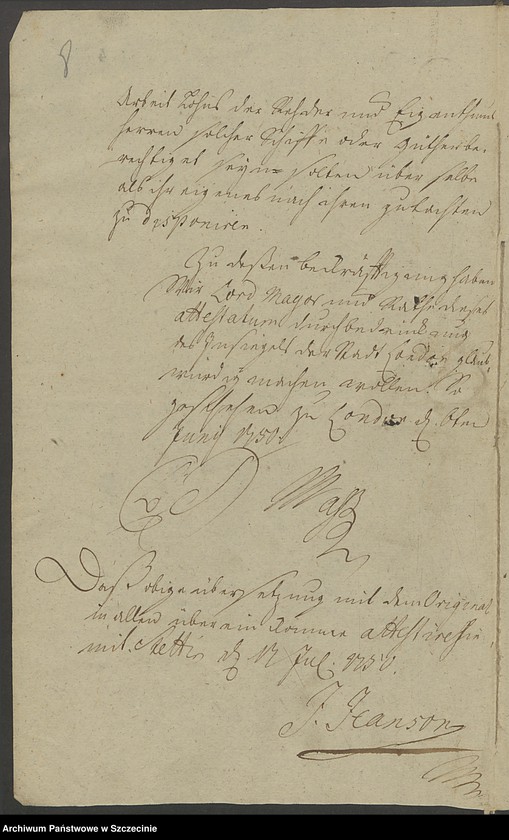 8
Arbeit Lohns der Rehder und Eigenthums
herren solcher Schiffe oder Güther be-
rechtiget seyn solten über selbe
als ihr eigenes nach ihren gutachten
zu disponiren.
Zu deßen bekräfftigung haben
Wir Lord Mayor und Rathe dieses
attestatum durch bedruckung
des Insiegels der Stadt London glaub
würdig machen wollen. So
geschehen zu London d. 6ten
Junij 1750.
Daß obige übersetzung mit dem Original
in allen überein komme attestire hie
mit. Stettin d 17 Jul. 1750.
J. Jeanson
Archiwum Państwowe w Szczecinie